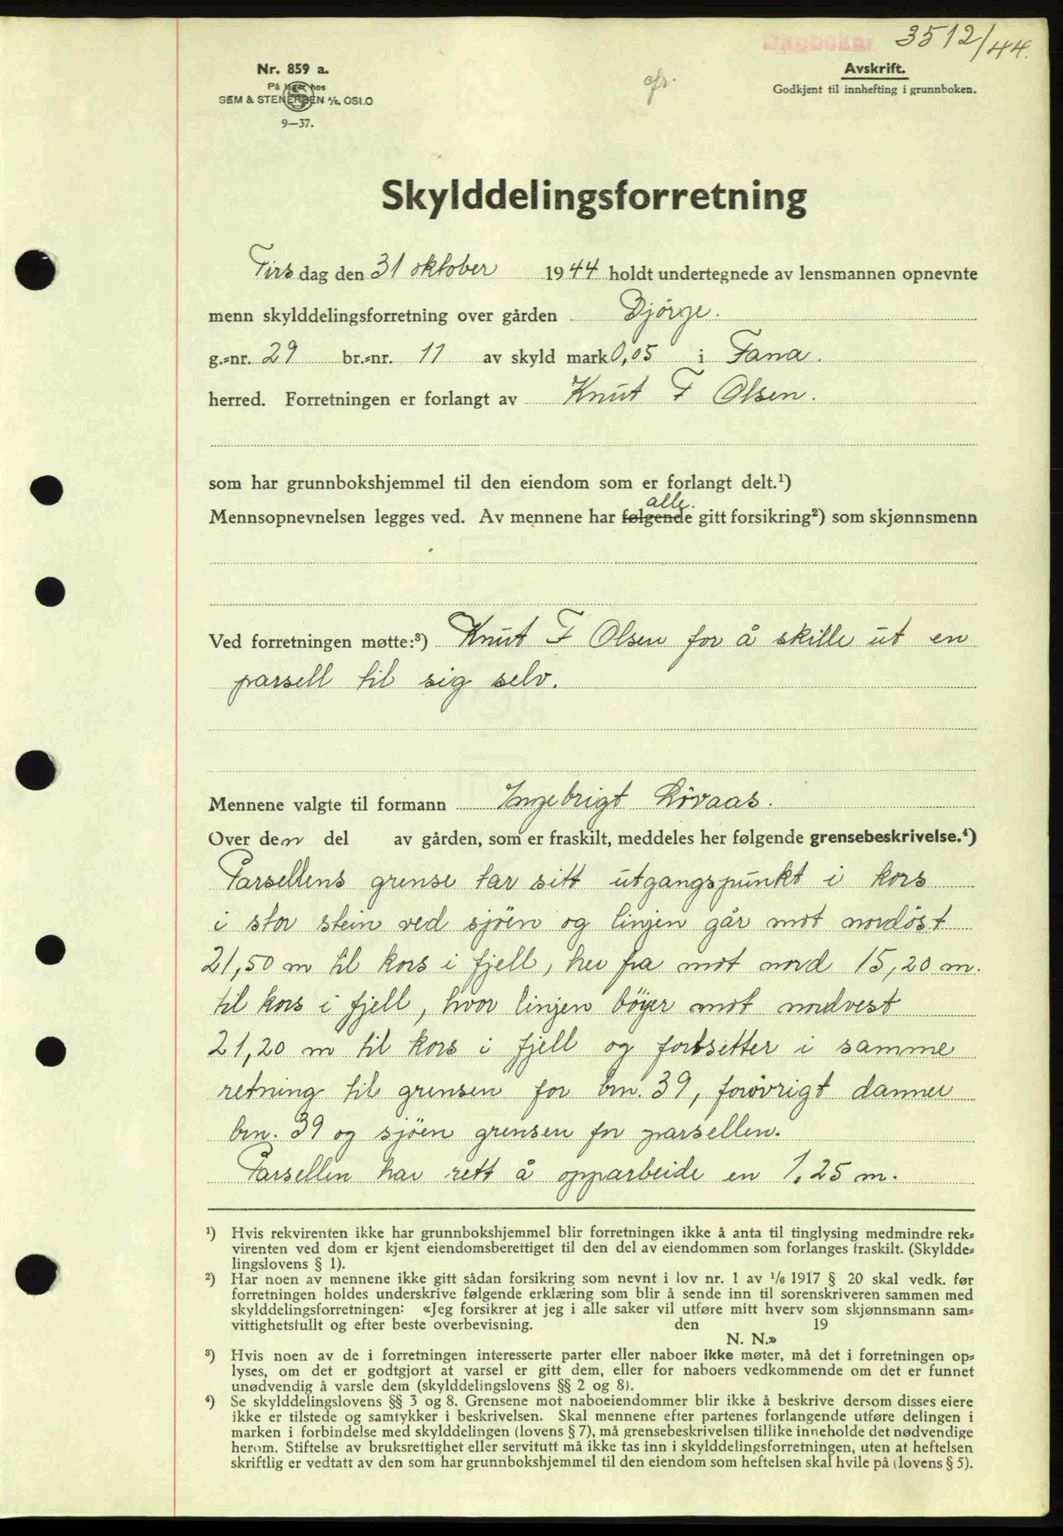 Dagboknr. 3512/44.
Nr. 859 a.
På lager hos
SEM & STENERSEN A/S, OSLO
9—37.
cfr.
Avskrift.
Godkjent til innhefting i grunnboken.
Skylddelingsforretning
Tirs dag den 31 oktober 1944 holdt undertegnede av lensmannen opnevnte
menn skylddelingsforretning over gården Bjørge.
g.-nr. 29 br.-nr. 11 av skyld mark 0,05 i Fana.
herred. Forretningen er forlangt av Knut F Olsen.
som har grunnbokshjemmel til den eiendom som er forlangt delt.¹)
alle.
Mennsopnevnelsen legges ved. Av mennene har følgende gitt forsikring²) som skjønnsmenn
Ved forretningen møtte:³) Knut F Olsen for å skille ut en
parsell til sig selv.
Mennene valgte til formann Ingebrigt Løvaas.
Over den del av gården, som er fraskilt, meddeles her følgende grensebeskrivelse.⁴)
Parsellens grense tar sitt utgangspunkt i kors
i stor stein ved sjöen og linjen går mot nordöst
21,50 m til kors i fjell, her fra mot nord 15,20 m.
til kors i fjell, hvor linjen böyer mot nordvest
21,20 m til kors i fjell og fortsetter i samme
retning til grensen for brn. 39, forövrigt danner
brn. 39 og sjöen grensen for parsellen.
Parsellen har rett å opparbeide en 1,25 m.
¹) Hvis rekvirenten ikke har grunnbokshjemmel blir forretningen ikke å anta til tinglysing medmindre rek-
virenten ved dom er kjent eiendomsberettiget til den del av eiendommen som forlanges fraskilt. (Skyldde-
lingslovens § 1).
²) Har noen av mennene ikke gitt sådan forsikring som nevnt i lov nr. 1 av 1/6 1917 § 20 skal vedk. før
forretningen holdes underskrive følgende erklæring som blir å sende inn til sorenskriveren sammen med
skylddelingsforretningen: «Jeg forsikrer at jeg i alle saker vil utføre mitt hverv som skjønnsmann sam-
vittighetsfullt og efter beste overbevisning. den 19
N. N.»
³) Hvis noen av de i forretningen interesserte parter eller naboer ikke møter, må det i forretningen op-
lyses, om det er godtgjort at varsel er gitt dem, eller for naboers vedkommende om det er funnet
unødvendig å varsle dem (skylddelingslovens §§ 2 og 8).
⁴) Se skylddelingslovens §§ 3 og 8. Grensene mot naboeiendommer blir ikke å beskrive dersom disses eiere
ikke er tilstede og samtykker i beskrivelsen. Skal mennene efter partenes forlangende utføre delingen i
marken i forbindelse med skylddelingen (lovens § 7), må grensebeskrivelsen tillike inneholde det nødvendige
herom. Stiftelse av bruksrettighet eller servitutt må ikke tas inn i skylddelingsforretningen, uten at heftelsen
skriftlig er vedtatt av den som har grunnbokshjemmel til den eiendom som heftelsen skal hvile på (lovens § 5).